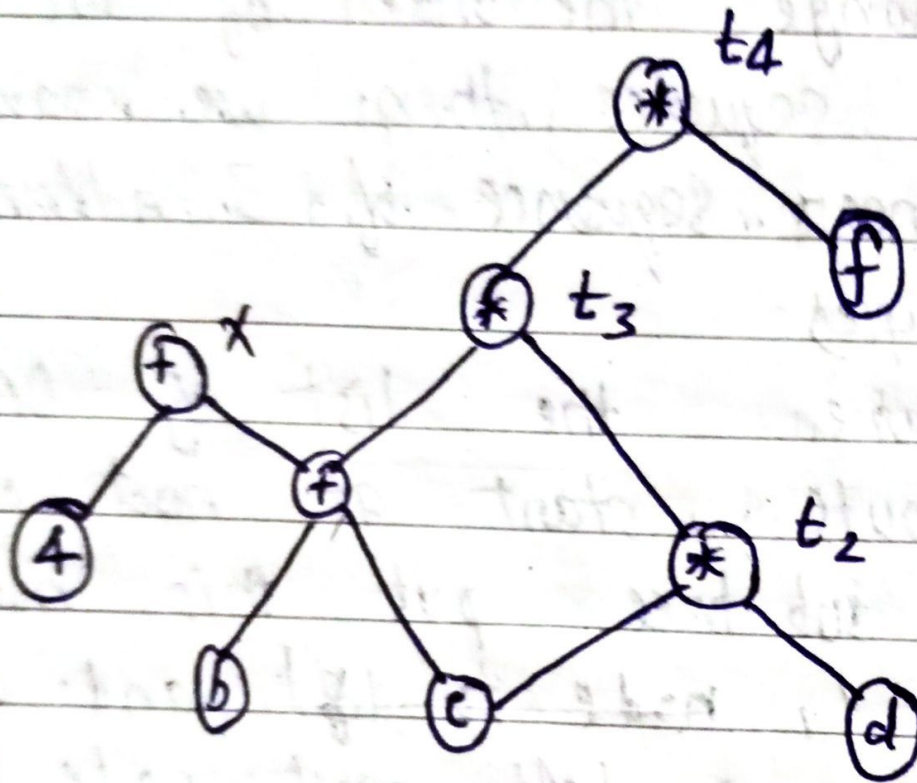 t4
*
f
* t3
+ x
+
4
* t2
b
c
d